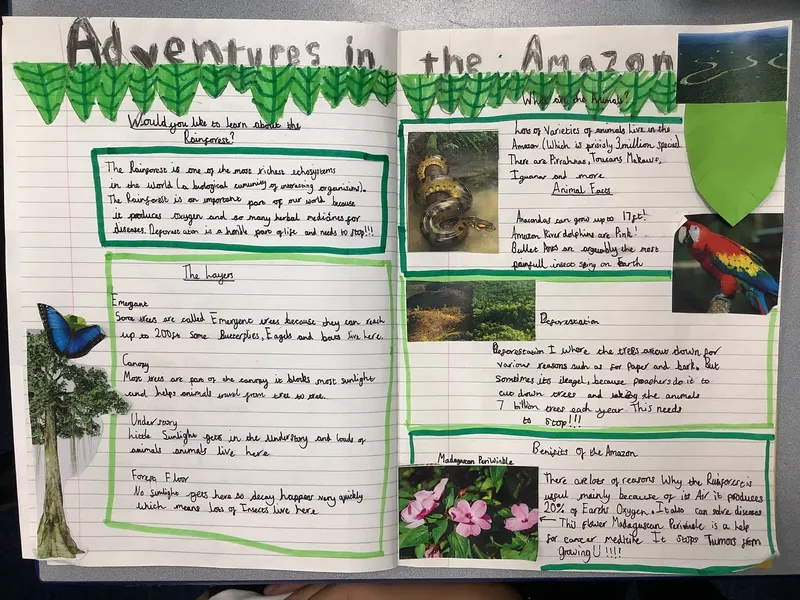 Adventures in the Amazon
Would you like to learn about the
Rainforest?
The Rainforest is one of the most richest echosystems
in the world (a biological cumunity of interesting organisims).
The Rainforest is an important part of our world because
it produces oxygen and so many herbal medicines for
diseases. Deforestation is a horrible part of life and needs to stop!!!
The Layers
Emergant
Some trees are called Emergent trees because they can reach
up to 200ft some Butterflies, Eagels and bats live here.
Canopy
Most trees are part of the canopy it blocks most sunlight
and helps animals travel from tree to tree.
Under story
Little Sunlight gets in the Understory and loads of
animals animals live here
Forest Floor
No sunlight gets here so decay happens very quickly
which means lots of Insects live here
What are the Animals?
Lots of Varieties of animals live in the
Amazon (Which is 3 million species)
There are Pirrahnas, Toucans Makaws,
Iguanas and more
Animal Facts
Anacondas can grow up to 17ft!
Amazon River dolphins are Pink!
Bullet Ants are arguably the most
painfull insect sting on Earth
Deforestation
Deforestation I where the trees are cut down for
various reasons such as for Paper and bark. But
Sometimes its illegel, because poachers do it to
cut down trees and taking the animals
7 billion trees each year This needs
to Stop!!!
Benifits Of the Amazon
Madagascan Periwinkle
There are lots of reasons Why the Rainforest is
useful mainly because of its Air it produces
20% of Earths Oxygen. It also can solve diseases
This flower Madagascan Periwinkle is a help
for cancer medicine It stops Tumors from
growing U !!!!